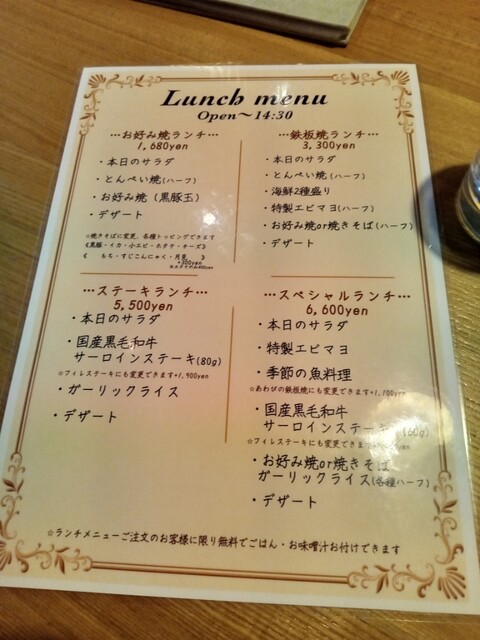 Lunch menu
Open～14:30
…お好み焼ランチ…
1,680yen
・本日のサラダ
・とんぺい焼(ハーフ)
・お好み焼（黒豚玉）
・デザート
☆焼きそばに変更、各種トッピングできます
《黒豚・イカ・小エビ・ホタテ・チーズ》
《 もち・すじこんにゃく・月見
+300yen
…鉄板焼ランチ…
3,300yen
・本日のサラダ
・とんぺい焼(ハーフ)
・海鮮2種盛り
・特製エビマヨ(ハーフ)
・お好み焼or焼きそば(ハーフ)
・デザート
…ステーキランチ…
5,500yen
・本日のサラダ
・国産黒毛和牛
サーロインステーキ(80g)
☆フィレステーキにも変更できます+1,900yen
・ガーリックライス
・デザート
…スペシャルランチ…
6,600yen
・本日のサラダ
・特製エビマヨ
・季節の魚料理
☆あわびの鉄板焼にも変更できます+1,100yen
・国産黒毛和牛
サーロインステーキ(60g)
☆フィレステーキにも変更できます
・お好み焼or焼きそば
ガーリックライス(各種ハーフ)
・デザート
☆ランチメニューご注文のお客様に限り無料でごはん・お味噌汁お付けできます